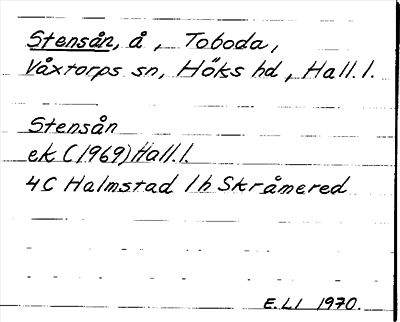 Stensån, å, Toboda,
Våxtorps sn, Höks hd, Hall. l.
Stensån
ek (1969) Hall. l.
4C Halmstad 1h Skråmered
E.LI 1970.